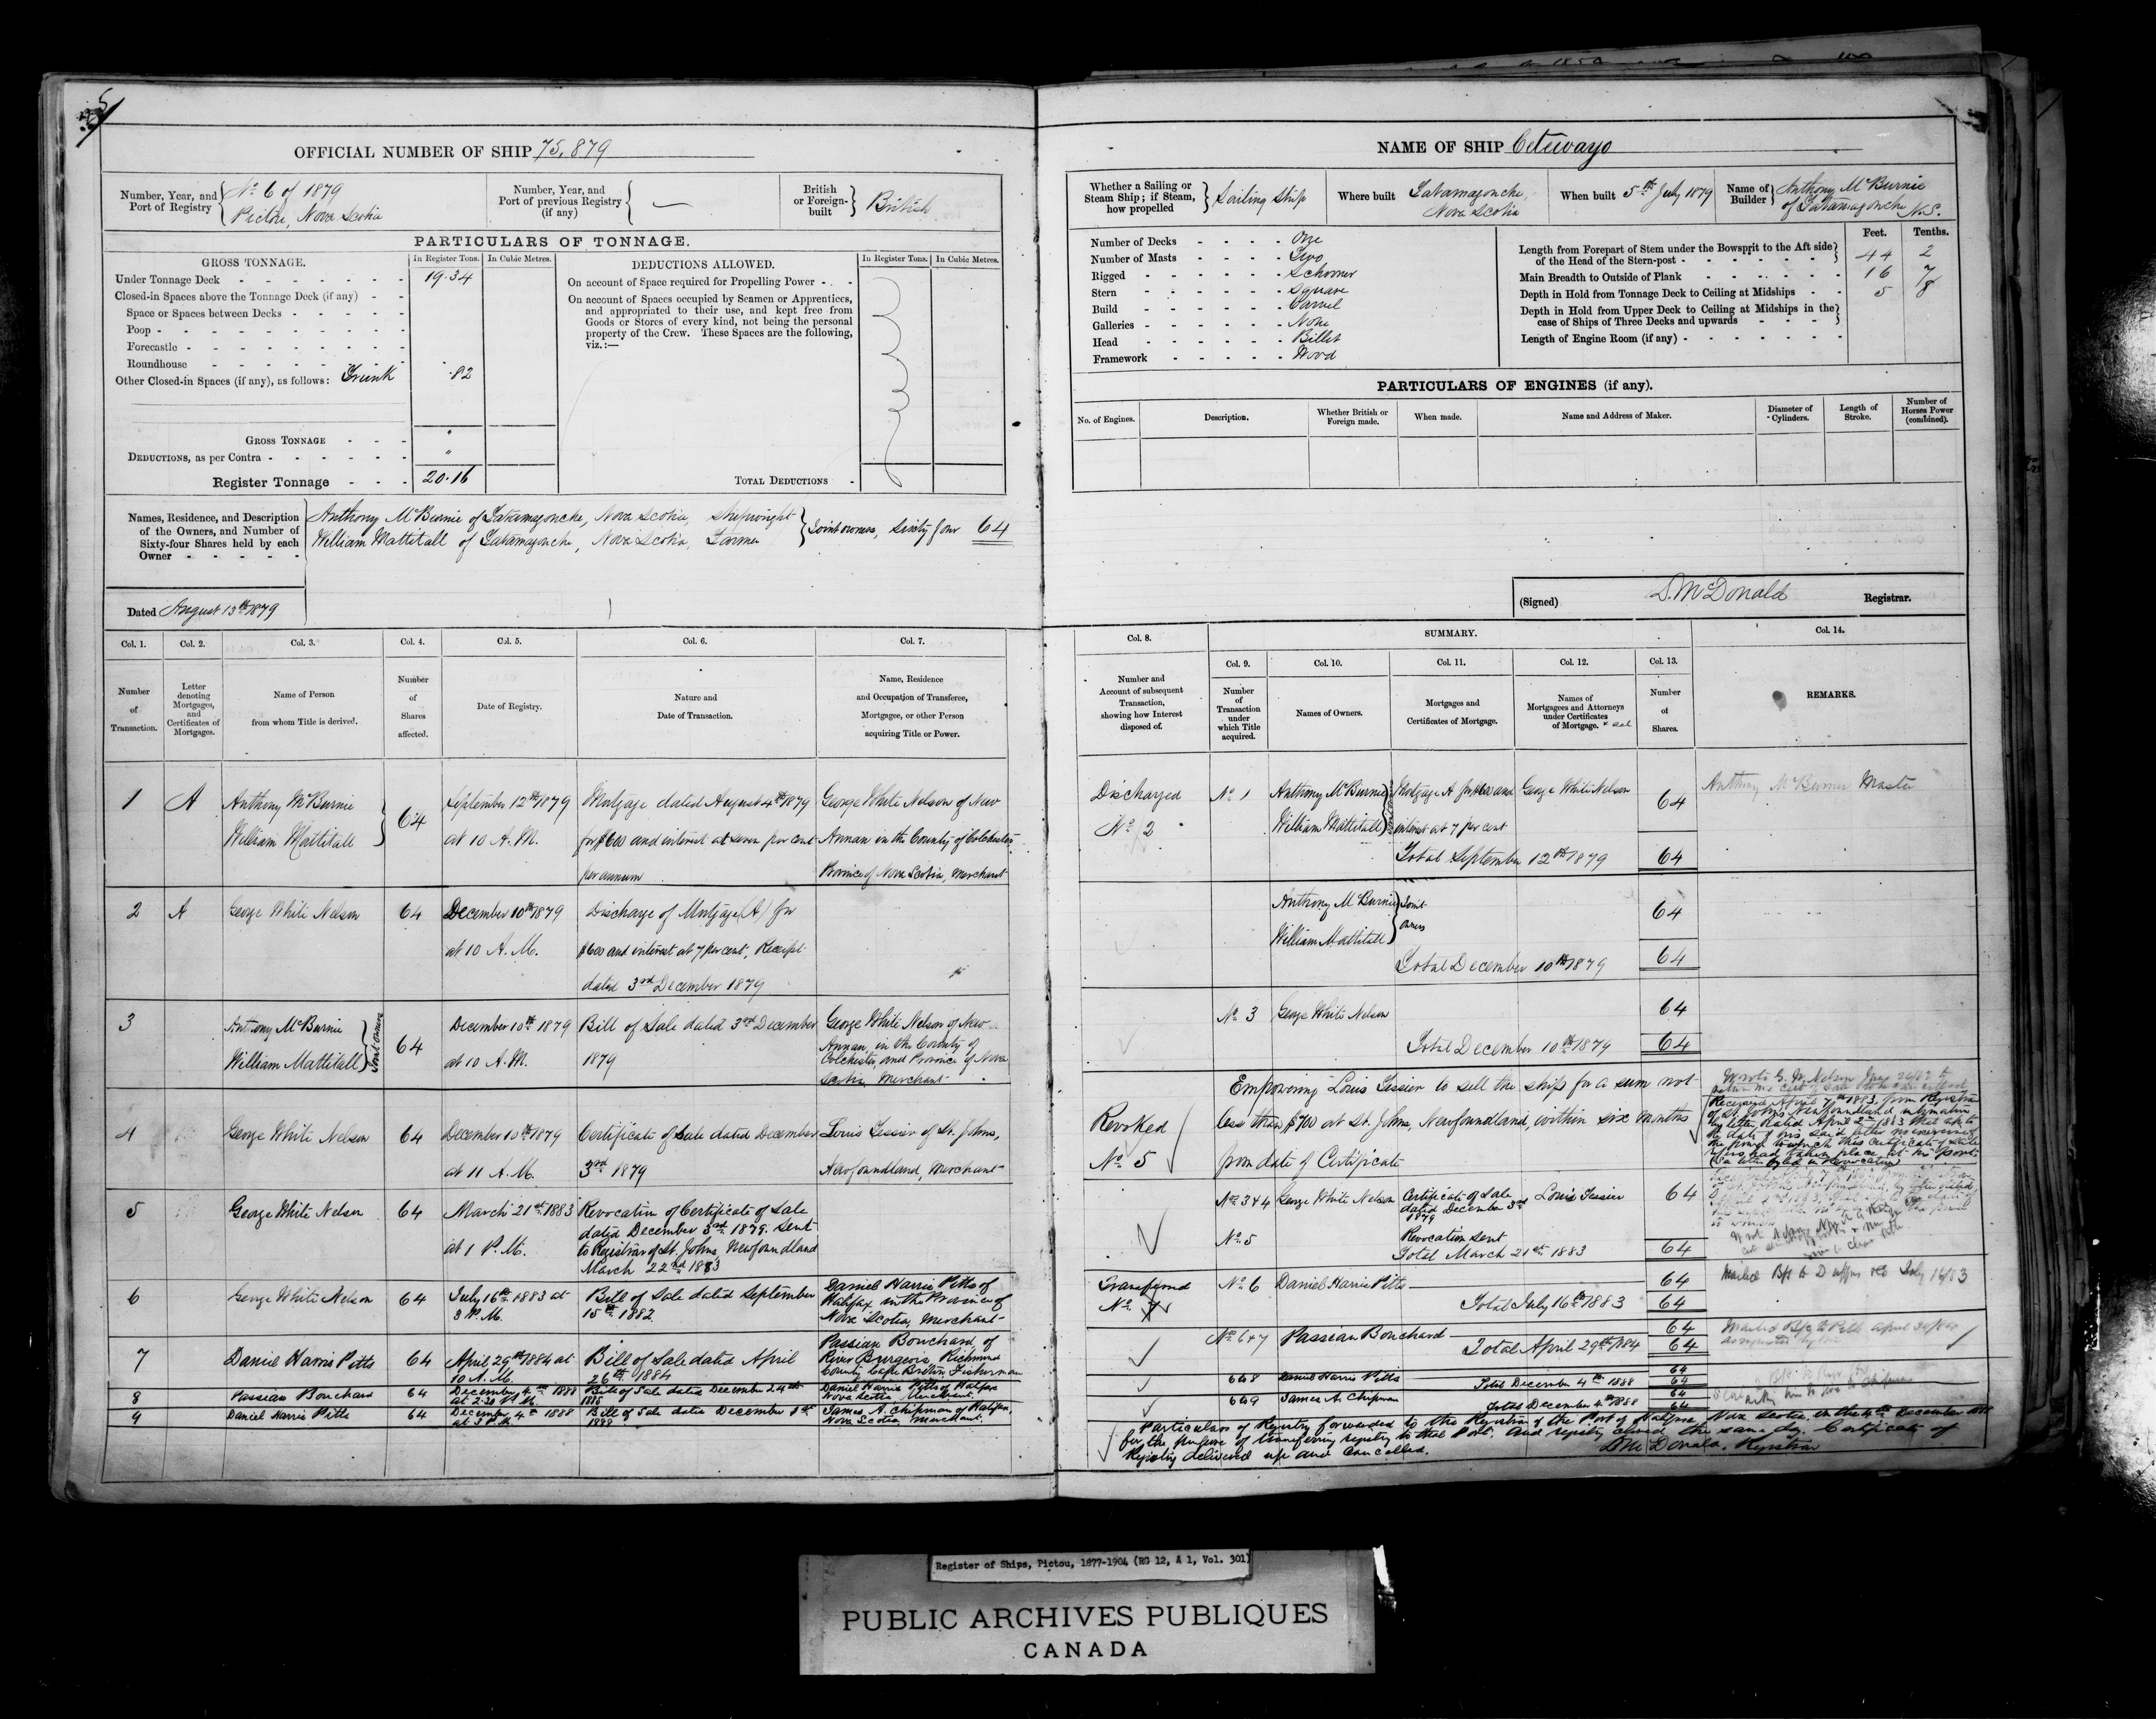 5
OFFICIAL NUMBER OF SHIP 75,879
Number, Year, and Port of Registry
No 6 of 1879
Pictou, Nova Scotia
Number, Year, and Port of previous Registry (if any) —
British or Foreign-built British
PARTICULARS OF TONNAGE.
GROSS TONNAGE.
In Register Tons. In Cubic Metres.
Under Tonnage Deck 19.34
Closed-in Spaces above the Tonnage Deck (if any)
Space or Spaces between Decks
Poop
Forecastle
Roundhouse
Other Closed-in Spaces (if any), as follows: Trunk .82
GROSS TONNAGE "
DEDUCTIONS, as per Contra "
Register Tonnage 20.16
DEDUCTIONS ALLOWED.
In Register Tons. In Cubic Metres.
On account of Space required for Propelling Power
On account of Spaces occupied by Seamen or Apprentices,
and appropriated to their use, and kept free from
Goods or Stores of every kind, not being the personal
property of the Crew. These Spaces are the following,
viz.:—
TOTAL DEDUCTIONS
Names, Residence, and Description
of the Owners, and Number of
Sixty-four Shares held by each
Owner
Anthony McBurnie of Tatamagouche, Nova Scotia, Shipwright
William Mattitall of Tatamagouche, Nova Scotia, Farmer
Joint owners, Sixty four 64
Dated August 13th 1879
Col. 1. Col. 2. Col. 3. Col. 4. Col. 5. Col. 6. Col. 7.
Number of Transaction.
Letter denoting Mortgages, and Certificates of Mortgages.
Name of Person from whom Title is derived.
Number of Shares affected.
Date of Registry.
Nature and Date of Transaction.
Name, Residence and Occupation of Transferee, Mortgagee, or other Person acquiring Title or Power.
1 A Anthony McBurnie 64 September 12th 1879 Mortgage dated August 4th 1879 George White Nelson of New
William Mattitall at 10 A.M. for $600 and interest at seven per cent Annan in the County of Colchester
per annum Province of Nova Scotia, Merchant
2 A George White Nelson 64 December 10th 1879 Discharge of Mortgage (A) for
at 10 A.M. $600 and interest at 7 per cent, Receipt
dated 3rd December 1879
3 Anthony McBurnie Joint owners 64 December 10th 1879 Bill of Sale dated 3rd December George White Nelson of New
William Mattitall at 10 A.M. 1879 Annan, in the County of
Colchester and Province of Nova
Scotia, Merchant
4 George White Nelson 64 December 10th 1879 Certificate of Sale dated December Louis Tessier of St. Johns,
at 11 A.M. 3rd 1879 Newfoundland, Merchant
5 George White Nelson 64 March 21st 1883 Revocation of Certificate of Sale
at 1 P.M. dated December 3rd 1879. Sent
to Registrar of St. Johns, Newfoundland
March 22nd 1883
6 George White Nelson 64 July 16th 1883 at Bill of Sale dated September Daniel Harris Pitts of
3 P.M. 15th 1882 Halifax in the Province of
Nova Scotia, Merchant
7 Daniel Harris Pitts 64 April 29th 1884 at Bill of Sale dated April Passian Bouchard, of
10 A.M. 26th 1884 River Burgeois, Richmond
County Cape Breton, Fisherman
8 Passian Bouchard 64 December 4th 1888 Bill of Sale dated December 24th Daniel Harris Pitts of Halifax
at 2.30 P.M. Nova Scotia Merchant.
9 Daniel Harris Pitts 64 December 4th 1888 Bill of Sale dated December James A. Chipman of Halifax,
at 3 P.M. 1888 Nova Scotia, Merchant.
NAME OF SHIP Cetewayo
Whether a Sailing or Steam Ship; if Steam, how propelled Sailing Ship
Where built Tatamagouche, Nova Scotia
When built 5th July 1879
Name of Builder Anthony McBurnie of Tatamagouche N.S.
Number of Decks One
Number of Masts Two
Rigged Schooner
Stern Square
Build Carvel
Galleries None
Head Billet
Framework Wood
Feet. Tenths.
Length from Forepart of Stem under the Bowsprit to the Aft side
of the Head of the Stern-post 44 2
Main Breadth to Outside of Plank 16 7
Depth in Hold from Tonnage Deck to Ceiling at Midships 5 8
Depth in Hold from Upper Deck to Ceiling at Midships in the
case of Ships of Three Decks and upwards
Length of Engine Room (if any)
PARTICULARS OF ENGINES (if any).
No. of Engines. Description. Whether British or Foreign made. When made. Name and Address of Maker. Diameter of Cylinders. Length of Stroke. Number of Horses Power (combined).
(Signed) D. McDonald Registrar.
Col. 8. SUMMARY. Col. 14.
Col. 9. Col. 10. Col. 11. Col. 12. Col. 13.
Number and Account of subsequent Transaction, showing how Interest disposed of.
Number of Transaction under which Title acquired.
Names of Owners.
Mortgages and Certificates of Mortgage.
Names of Mortgagees and Attorneys under Certificates of Mortgage.
Number of Shares.
REMARKS.
Discharged No 1 Anthony McBurnie Mortgage A for $600 and George White Nelson 64 Anthony McBurnie Master
No 2 William Mattitall interest at 7 per cent
Total September 12th 1879 64
Anthony McBurnie Joint 64
William Mattitall owners
Total December 10th 1879 64
No 3 George White Nelson 64
Total December 10th 1879 64
Revoked
No 5
Empowering Louis Tessier to sell the ship for a sum not
less than $700 at St. Johns, Newfoundland, within six months
from date of Certificate
Received April 7th 1883, from Registrar
of St. John's Newfoundland
by letter dated April 2nd 1883 that up to
the date of his said letter no exercise of
the power to which this Certificate of Sale
refers had taken place at his port.
Nos 3 & 4 George White Nelson Certificate of Sale Louis Tessier 64
dated December 3rd
1879
No 5 Revocation sent
Total March 21st 1883 64
Transferred No 6 Daniel Harris Pitts 64
No 7 Total July 16th 1883 64
No 6 & 7 Passian Bouchard 64
Total April 29th 1884 64
6 & 8 Daniel Harris Pitts 64
Total December 4th 1888 64
6 & 9 James A. Chipman 64
Total December 4th 1888 64
Particulars of Registry forwarded to the Registrar of the Port of Halifax, Nova Scotia, on the 4th December 1888
for the purpose of transferring registry to that Port. And registry closed the same day. Certificate of
Registry delivered up and cancelled. D McDonald, Registrar
Register of Ships, Pictou, 1877-1904 (RG 12, A 1, Vol. 301)
PUBLIC ARCHIVES PUBLIQUES
CANADA